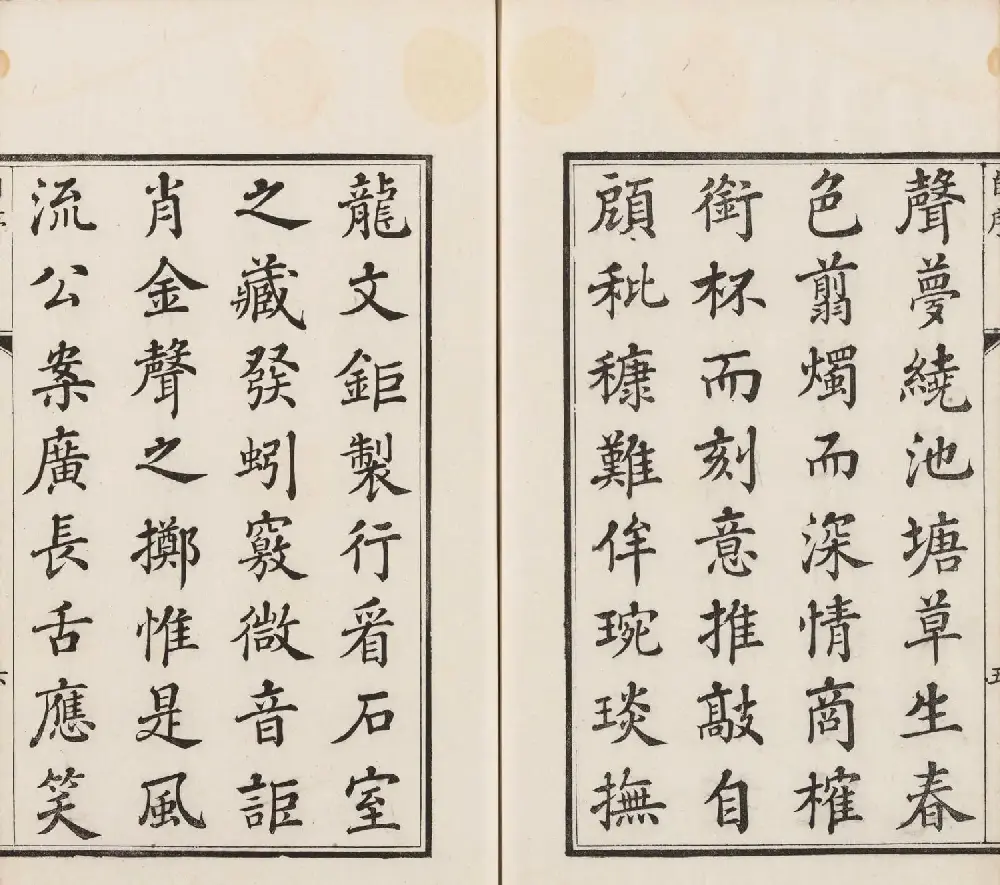 聲夢繞池塘草生春
色翦燭而深情商榷
銜杯而刻意推敲自
頋秕穅難侔琬琰撫
龍文鉅製行看石室
之藏發蚓竅微音詎
肖金聲之擲惟是風
流公案廣長舌應笑